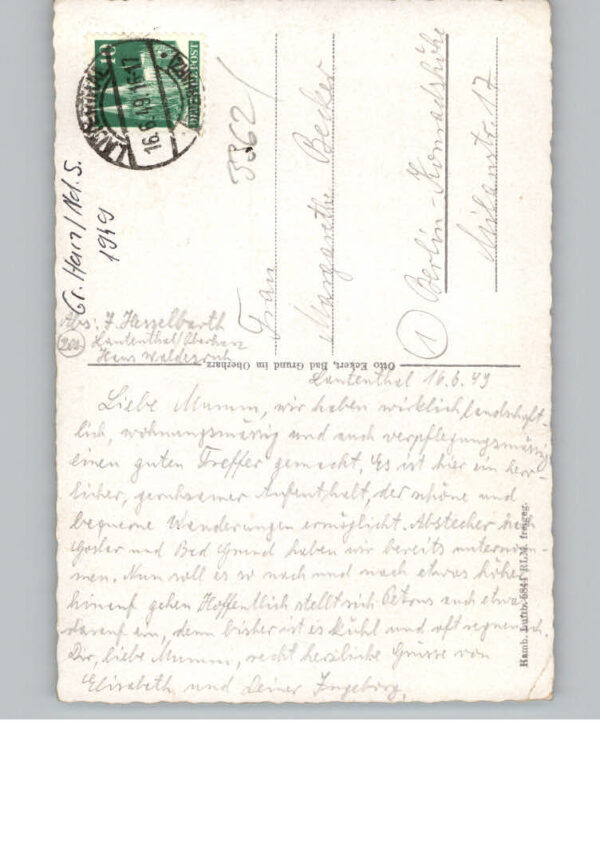 10
DEUTSCHE POST
LAUTENTHAL
16.6.49.16-17
3362/
Gr. Harz/Nds.
1949
Abs: J. Hesselbarth
Lautenthal/Oberharz
Haus Waldesruh
Frau
Margarethe Becker
1 Berlin-Konradshöhe
Milanstr. 17
Otto Eckert, Bad Grund im Oberharz.
Hamb. Luftb. 6844 RLM. freigeg.
Lautenthal 16.6.49
Liebe Mumm, wir haben wirklich landschaft-
lich, wohnungsmässig und auch verpflegungsmässig
einen guten Treffer gemacht. Es ist hier ein herr-
licher, geruhsamer Aufenthalt, der schöne und
bequeme Wanderungen ermöglicht. Abstecher nach
Goslar und Bad Grund haben wir bereits unternom-
men. Nun soll es so nach und nach etwas höher
hinauf gehen. Hoffentlich stellt sich Petrus auch etwas
darauf ein, denn bisher ist es kühl und oft regnerisch.
Dir, liebe Mumm, recht herzliche Grüsse von
Elisabeth und Deiner Ingeborg.